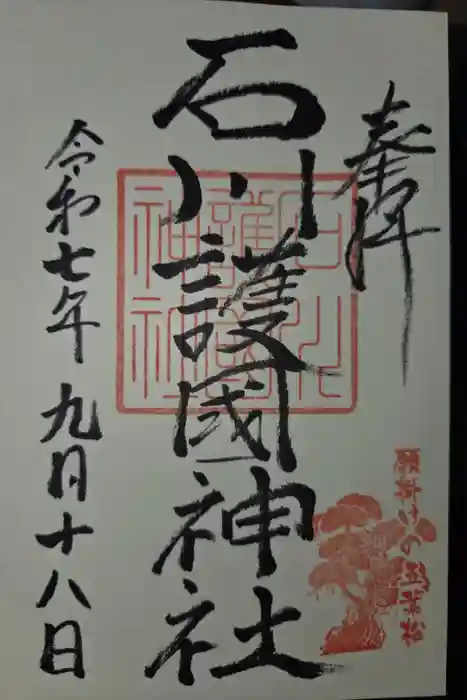 奉拝
石川護國神社
石川護國神社
願掛けの五葉松
令和七年 九月十八日